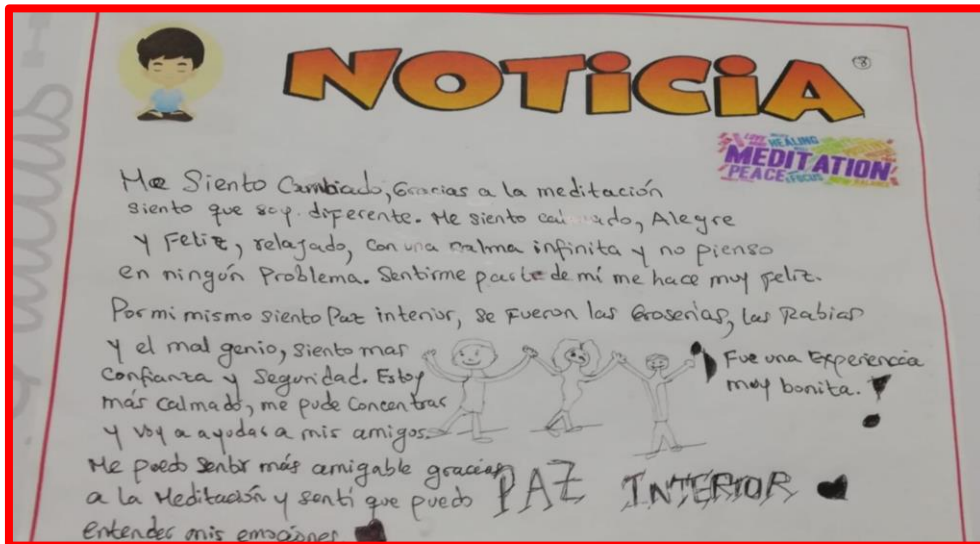 NOTiCiA
8
LOVE HEALING
MEDITATION
PEACE FOCUS
Me Siento Cambiado, Gracias a la meditación
siento que soy diferente. Me siento calmado, Alegre
Y Feliz, relajado, con una calma infinita y no pienso
en ningún Problema. Sentirme parte de mí me hace muy feliz.
Por mi mismo siento Paz interior, se fueron las Groserías, las Rabias
y el mal genio, siento mas
confianza y Seguridad. Estoy
más calmado, me pude Concentrar
y voy a ayudar a mis amigos.
Fue una Experiencia
muy bonita.
Me puedo sentir más amigable gracias
a la Meditación y sentí que puedo
entender mis emociones
PAZ INTERIOR